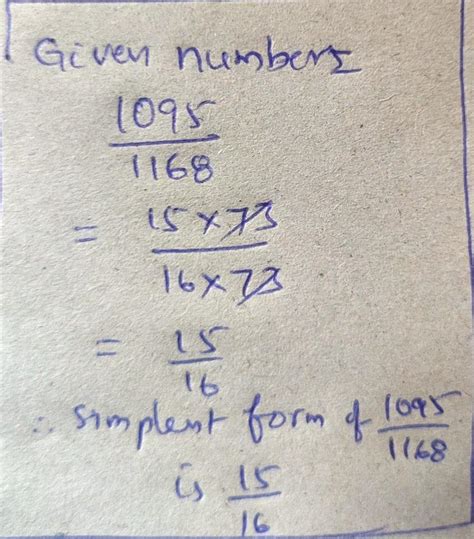 Given numbers
1095
1168
= 15 × 73
16 × 73
= 15
16
∴ simplest form of 1095
1168
is 15
16